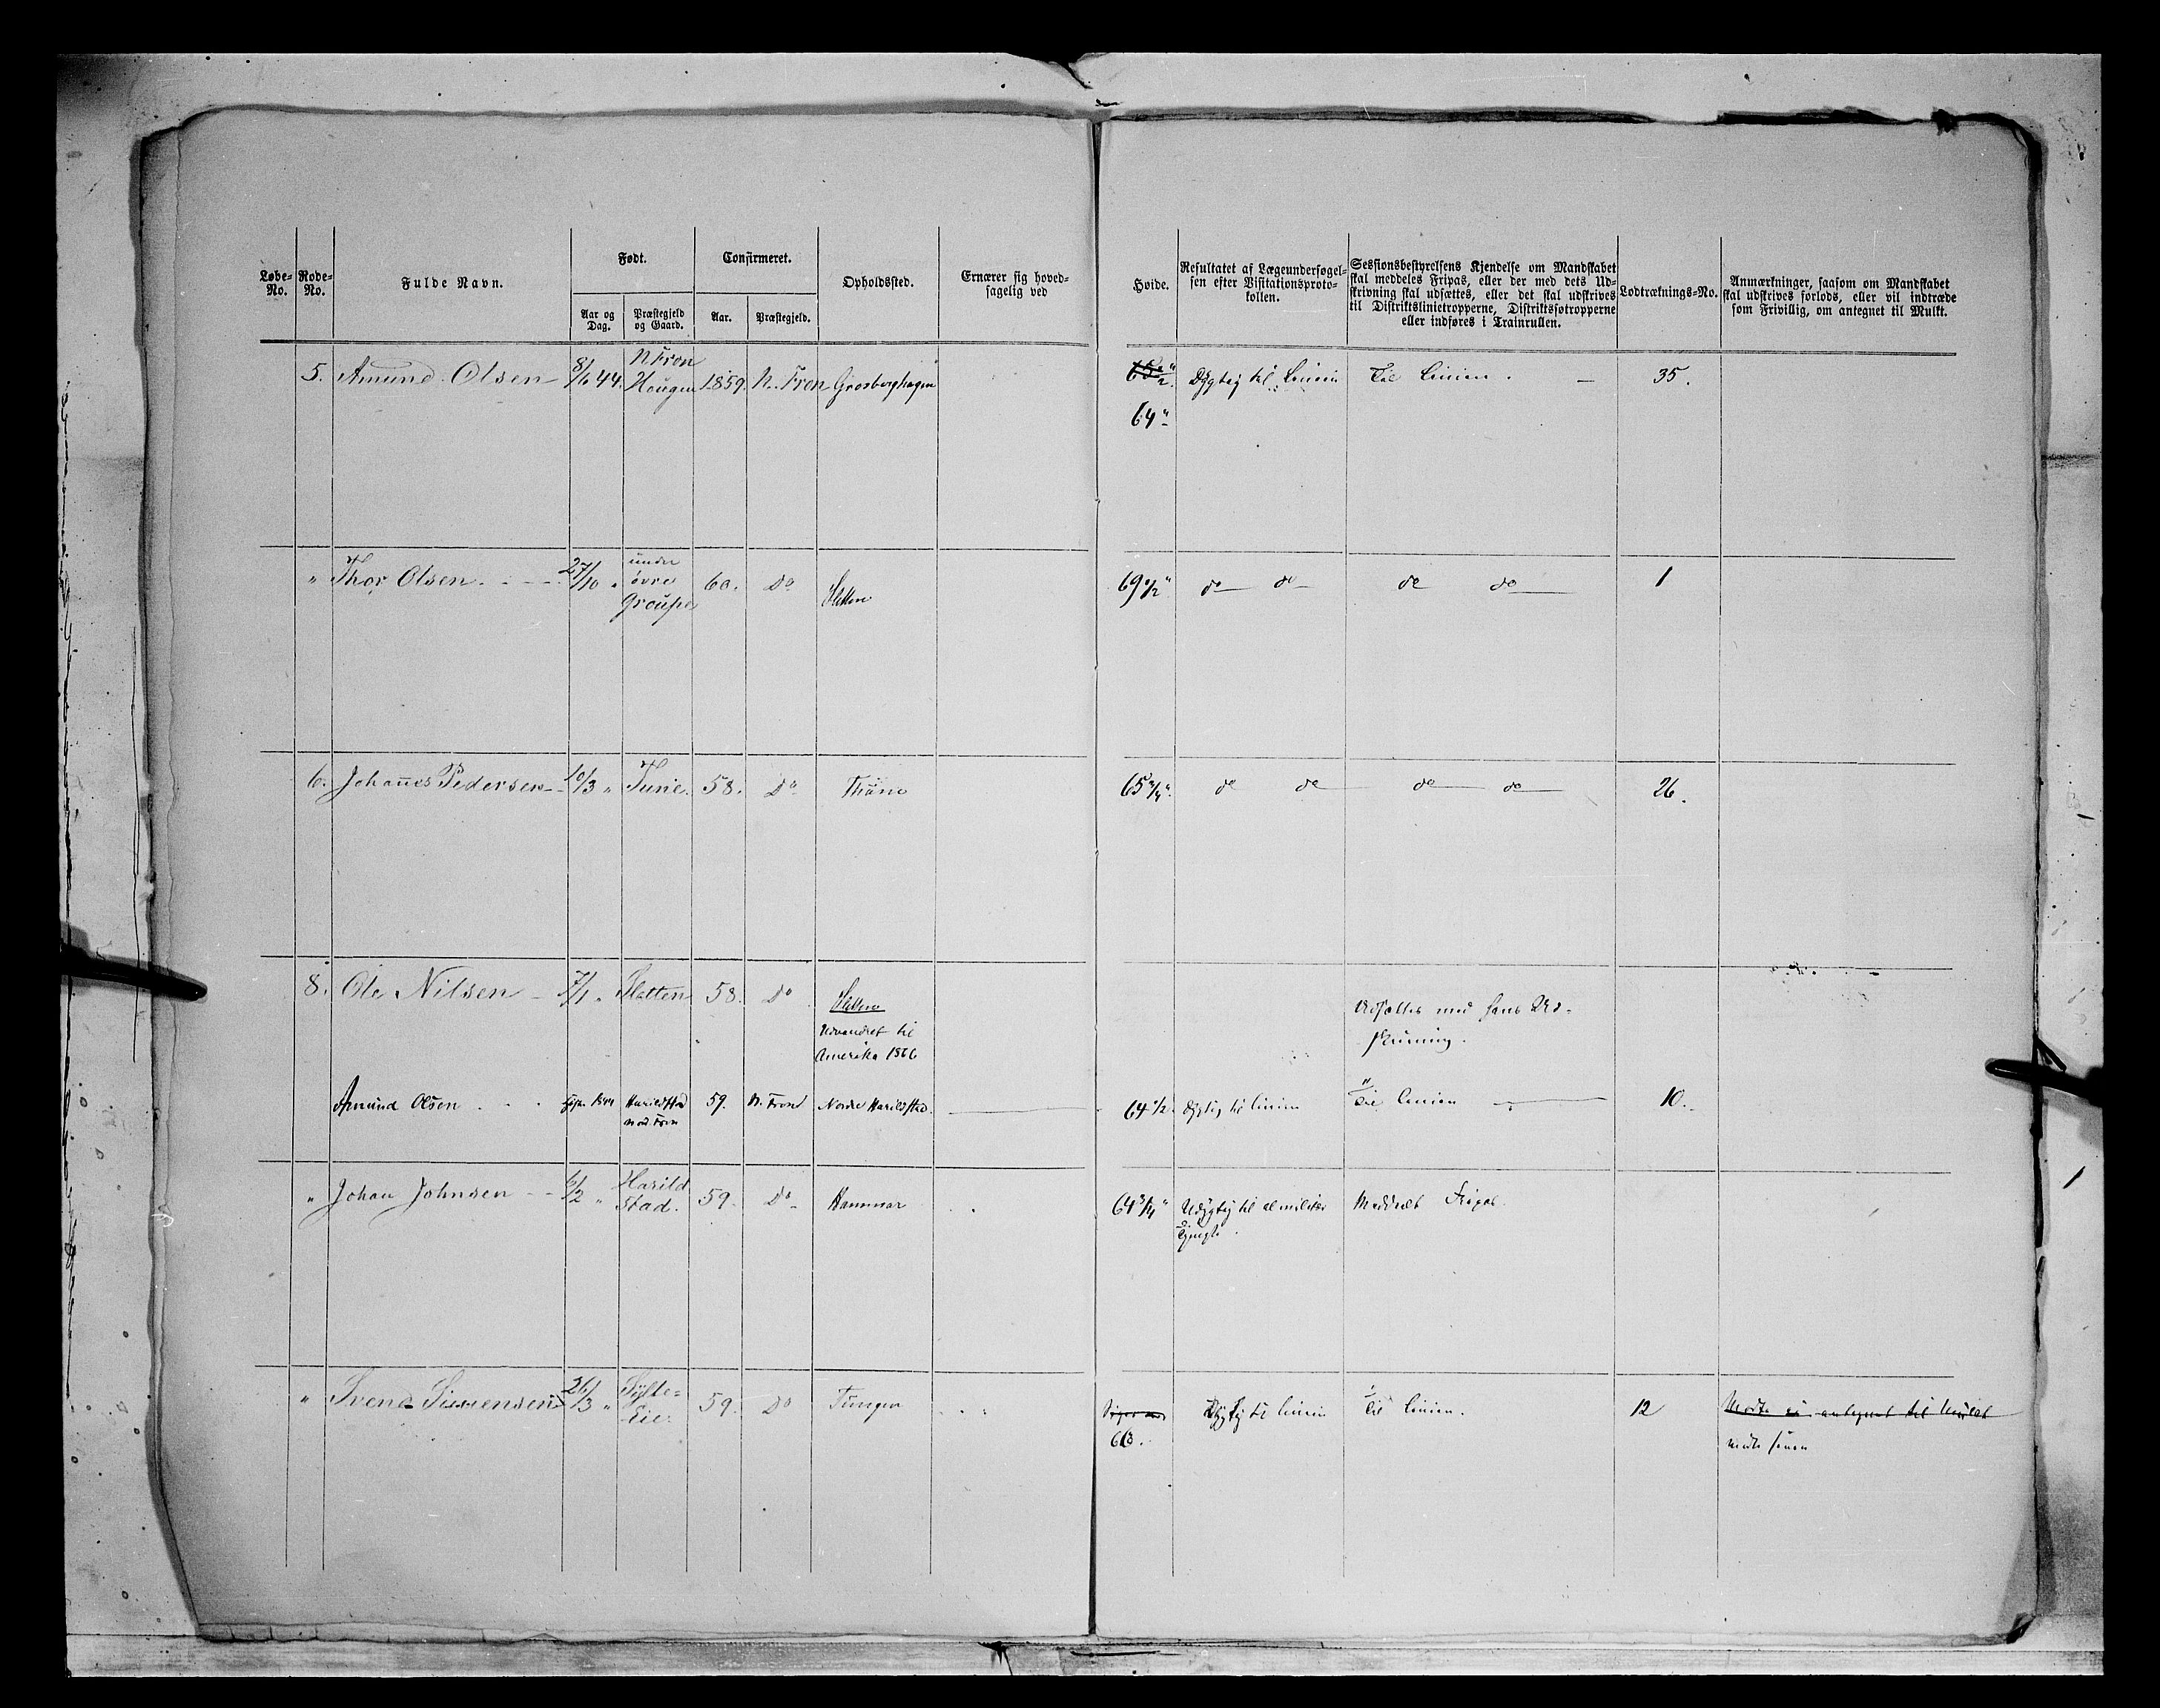 Løbe-No.
Rode-No.
Fulde Navn.
Født.
Aar og Dag.
Præstegjeld og Gaard.
Confirmeret.
Aar.
Præstegjeld.
Opholdssted.
Ernærer sig hoved-
sagelig ved
Høide.
Resultatet af Lægeundersøgel-
sen efter Visitationsproto-
kollen.
Sessionsbestyrelsens Kjendelse om Mandskabet
skal meddeles Fripas, eller der med dets Ud-
skrivning skal udsættes, eller det skal udskrives
til Distriktslinietropperne, Distriktsfotropperne
eller indføres i Trainrullen.
Lodtræknings-No.
Anmærkninger, saasom om Mandskabet
skal udskrives forlods, eller vil indtræde
som Frivillig, om antegnet til Mulkt.
5. Amund Olsen 8/6 44. N Fron Hougen 1859. N. Fron Grosberghagen Dygtig til Linien Til Linien. 35.
64"
" Thor Olsen 27/10 " under øvre Groupe 60. Do Sletten 69 1/2" do do do do 1
6. Johannes Pedersen 10/3 " Turie. 58. Do 65 3/4" do do do do 26.
8. Ole Nilsen 7/1 " Sletten 58. Do Sletten
Udvandret til
Amerika 1866
Udsættes med hans Ud-
skrivning.
Amund Olsen 1844 Harildstad Nord Fron 59. N. Fron Nordre Harildstad 64 1/2 dygtig til linien Til linien 10.
" Johan Johnsen 6/2 " Harild Stad. 59. Do Hammar 64 3/4" Udygtig til al militær Tjeneste. Meddeelt Fripas.
" Svend Simensen 26/3 " Sylte-Eie. 59. Do Dygtig til linien Til linien. 12 Mødte ei antegnet til Mulct